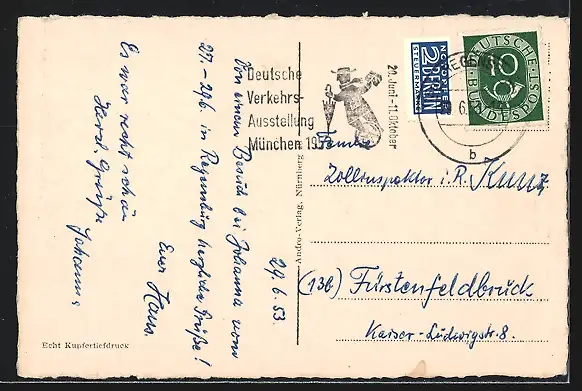 29.6.53
Von einem Besuch bei Johanna vom
27.-29.6. in Regensburg herzliche Grüße!
Euer Hans.
Es war recht schön
Herzl. Grüße
Johanna
Echt Kupfertiefdruck
Andro-Verlag, Nürnberg
Deutsche
Verkehrs-
Ausstellung
München 195
20. Juni - 11. Oktober
NOTOPFER
2 BERLIN
STEUERMARKE
REGENSB
6.
b
DEUTSCHE
10
BUNDESPOST
Familie
Zollinspektor i. R. Kunz
(13b) Fürstenfeldbruck
Kaiser-Ludwigstr. 8.